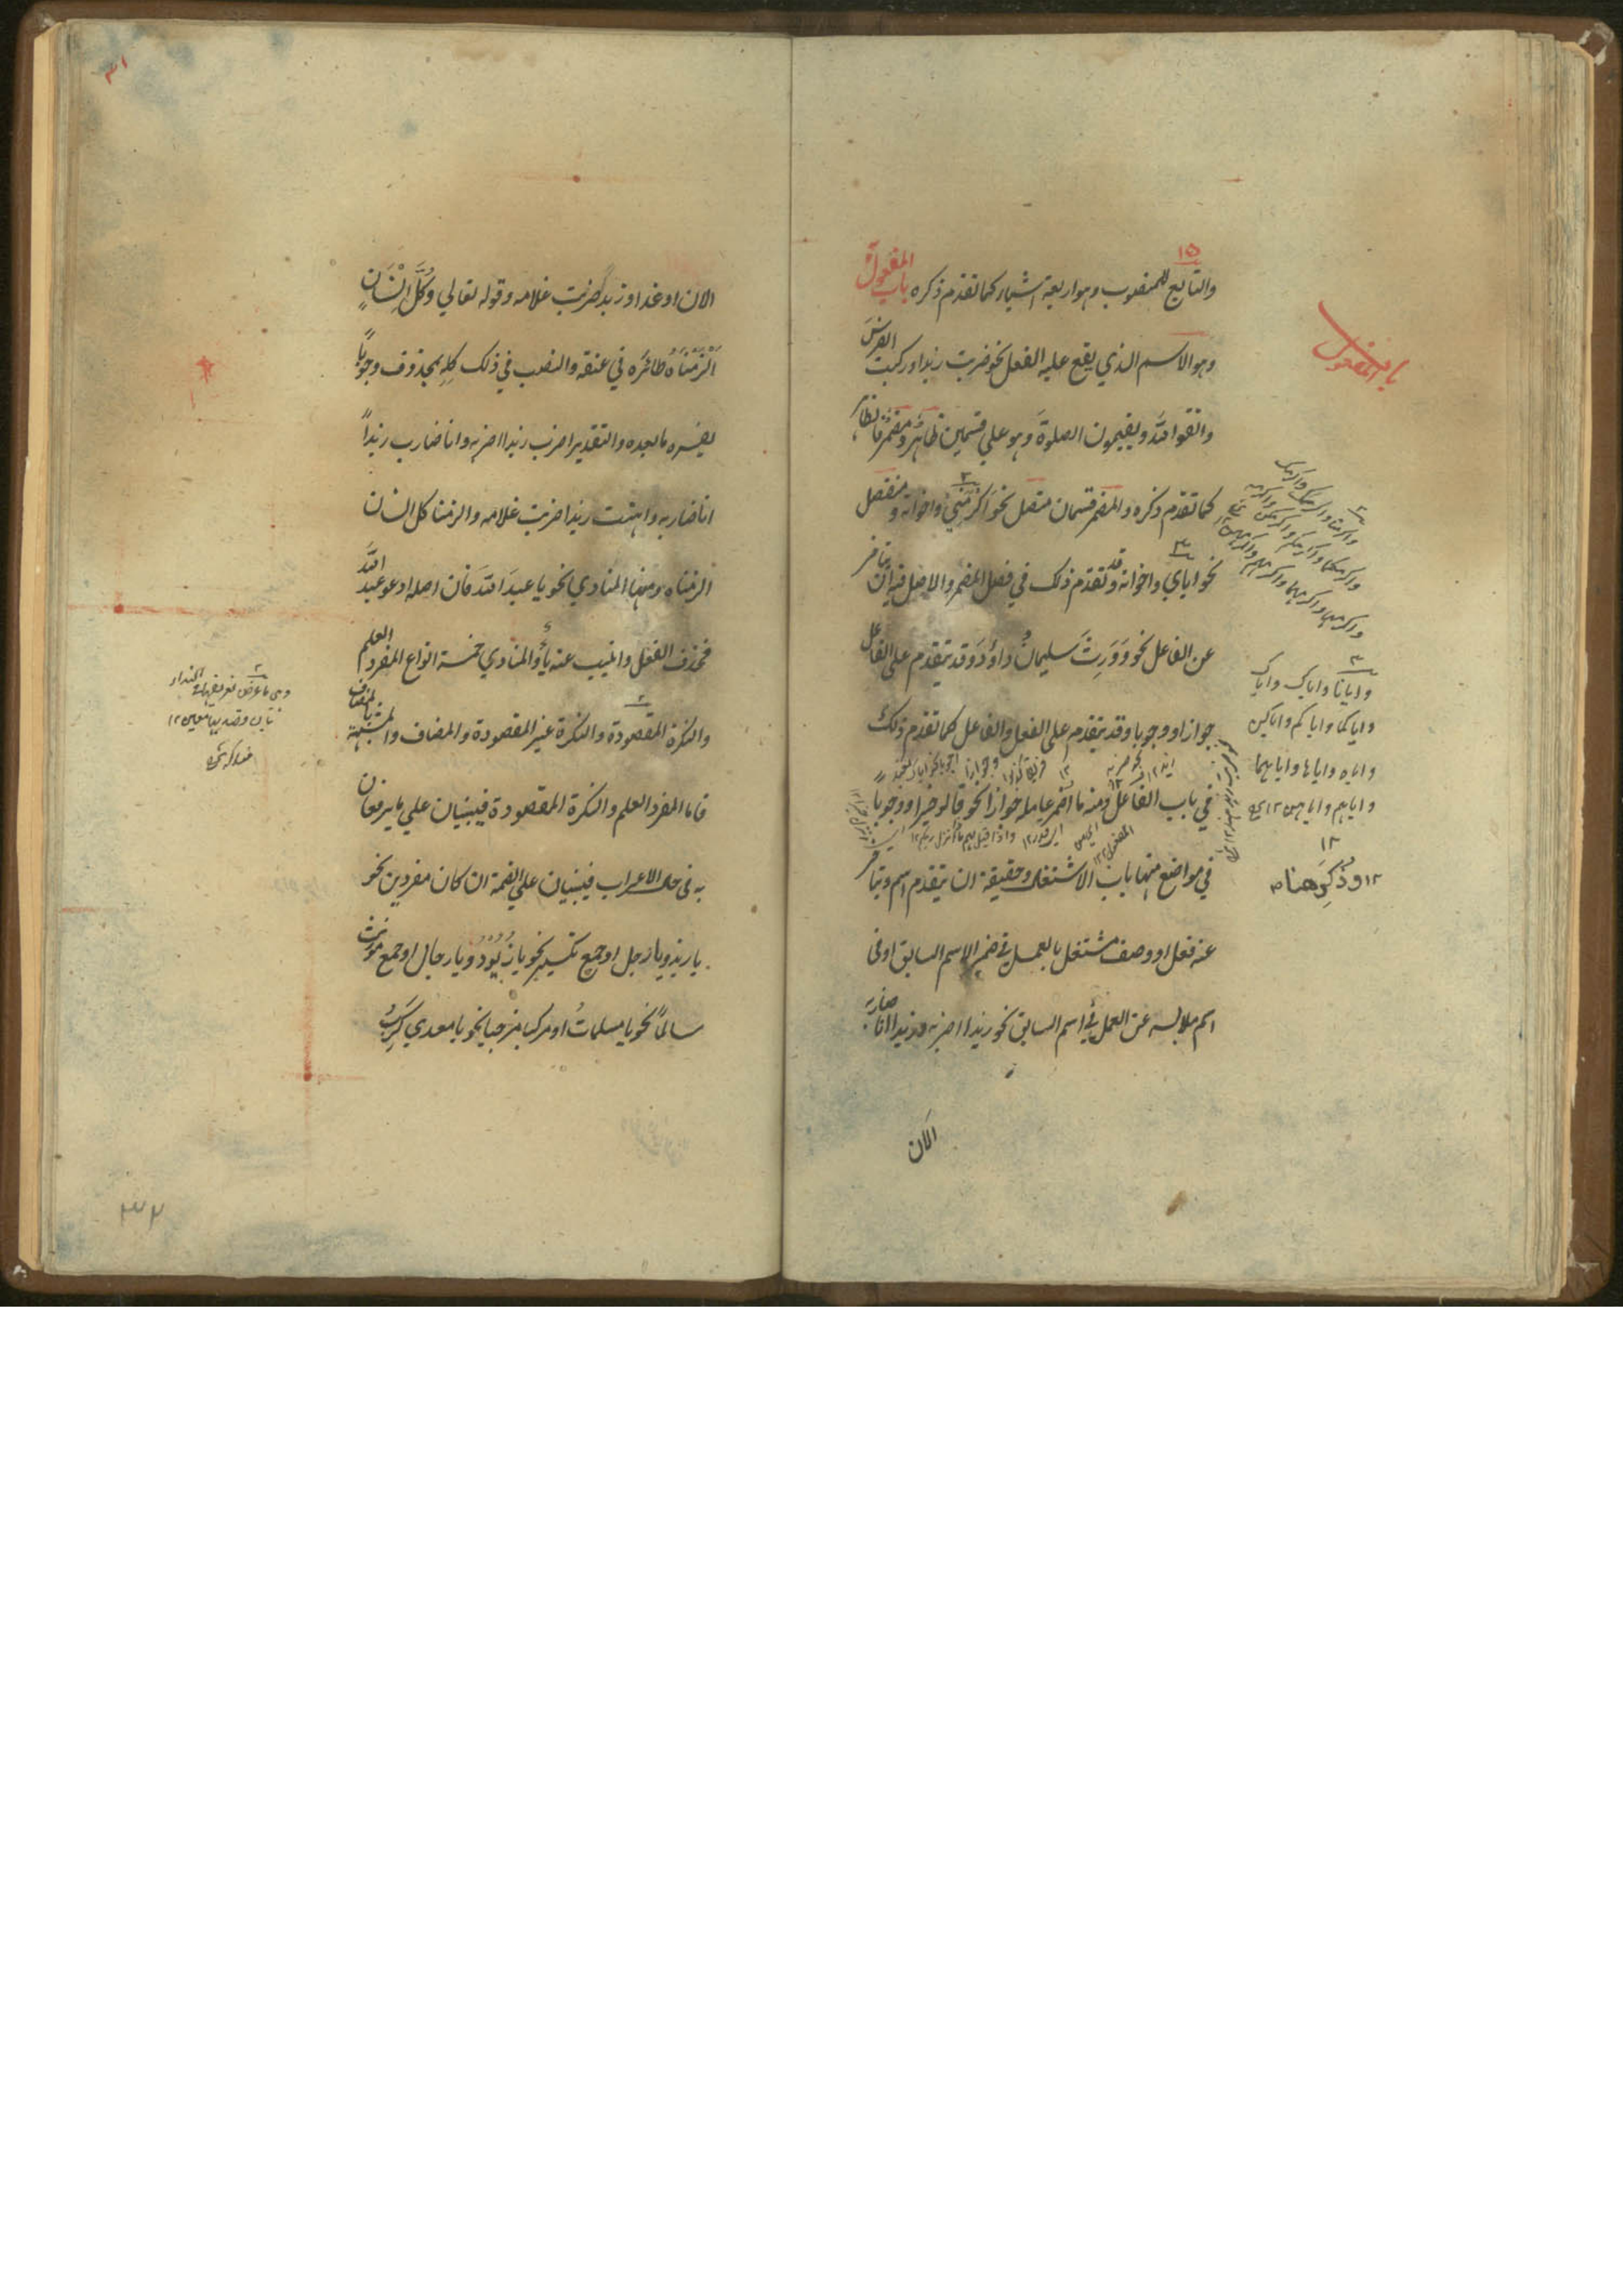 ١٥
والتابع للمنصوب وهو اربعة اشياء كما تقدم ذكره باب المفعول به
وهو الاسم الذي يقع عليه الفعل نحو ضربت زيدا وركبت الفرسَ
واتقوا الله ويقيمون الصلوةَ وهو على قسمين ظاهرٌ ومضمرٌ فالظاهر
كما تقدم ذكره والمضمر قسمان متصل نحو اكرَمَنِي واخواته ومنفصل
نحو اياي واخواته وقد تقدم ذلك في فصل المضمر والاصل فيه ان يتأخر
عن الفاعل نحو وَوَرِثَ سليمانُ داوُدَ وقد يتقدم على الفاعل
جوازا ووجوبا وقد يتقدم على الفعل والفاعل كما تقدم ذلك
في باب الفاعل ومنه ما اضمر عامله جوازا نحو قالوا خيرا ووجوبا
في مواضع منها باب الاشتغال وحقيقة ان يتقدم اسم ويتأخر
عنه فعل او وصف مشتغل بالعمل في ضمير الاسم السابق او في
اسم ملابسه عن العمل في اسم السابق نحو زيدا اضربه وزيدا انا ضاربه
الآن
باب المفعول
واكرمنا واكرمك واكرمك
واكرمكما واكرمكم واكرمكن واكرمه
واكرمها واكرمهما واكرمهم واكرمهن ١٢
٣
وايانا واياك واياك
واياكما واياكم واياكن
واياه واياها واياهما
واياهم واياهن ١٢
١٢
وذُكِرَ هنا
٣١
الان او غدا وزيدا ضربت غلامه وقوله تعالي وَكُلَّ اِنْسَانٍ
اَلْزَمْنَاهُ طَائِرَه في عنقه والنصب في ذلك كلِه بمحذوف وجوباً
يفسره ما بعده والتقدير اضرب زيدا اضربه وانا ضارب زيداً
انا ضاربه واهنت زيدا ضربت غلامه والزمنا كل انسان
الزمناه ومنها المنادي نحو يا عبدَ اللهَ فان اصله ادعو عبد اللهَ
فحذف الفعل وانيب عنه يا والمنادي خمسة انواع المفرد العلم
والنكرة المقصودة والنكرة غير المقصودة والمضاف والمشبهة بالمضاف
فاما المفرد العلم والنكرة المقصودة فيبنيان علي ما يرفعان
به في حالة الاعراب فيبنيان علي الضمة ان كان مفردين نحو
يا زيد ويا رجل او جمع تكسير نحو يا زُيُوْدُ ويا رجال او جمع مؤنث
سالماً نحو يا مسلماتُ او مركبا مزجيا نحو يا معدي كَرِبُ
وهي ما عرض تعريفها في النداء
٣٢